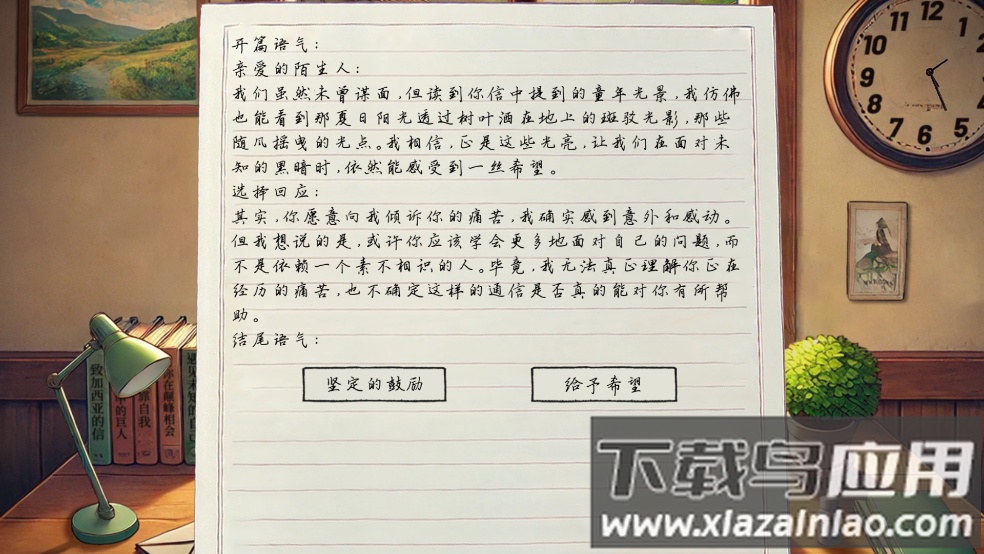 开篇语气：
亲爱的陌生人：
我们虽然未曾谋面，但读到你信中提到的童年光景，我仿佛
也能看到那夏日阳光透过树叶洒在地上的斑驳光影，那些
随风摇曳的光点。我相信，正是这些光亮，让我们在面对未
知的黑暗时，依然能感受到一丝希望。
选择回应：
其实，你愿意向我倾诉你的痛苦，我确实感到意外和感动。
但我想说的是，或许你应该学会更多地面对自己的问题，而
不是依赖一个素不相识的人。毕竟，我无法真正理解你正在
经历的痛苦，也不确定这样的通信是否真的能对你有所帮
助。
结尾语气：
坚定的鼓励 给予希望
致加西亚的信
的巨人
靠自我
你在巅峰相会
遇见未知的自己
12
1
11
10
9
8
7
6
5
下载鸟应用
www.xlazainlao.com